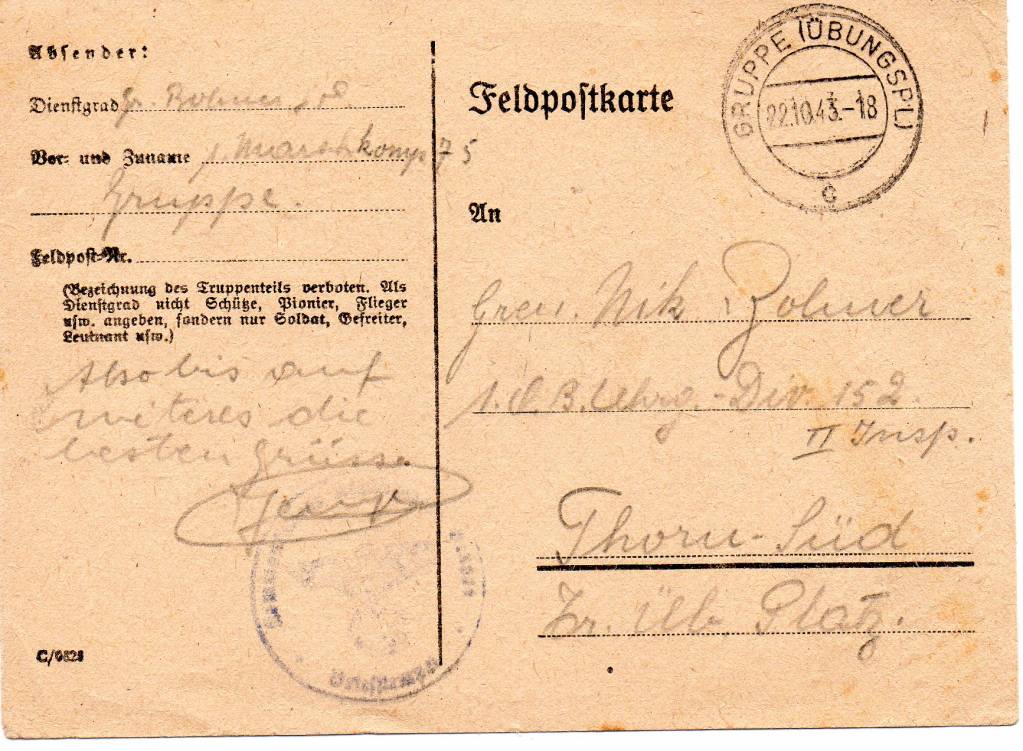 Absender:
Dienstgrad Gr. Bohmer
Vor- und Zuname 1. Marschkomp. 75
Gruppe.
Feldpost-Nr.
(Bezeichnung des Truppenteils verboten. Als
Dienstgrad nicht Schütze, Pionier, Flieger
usw. angeben, sondern nur Soldat, Gefreiter,
Leutnant usw.)
Also bis auf
weiteres die
besten Grüsse
C/0828
Feldpostkarte
GRUPPE (ÜBUNGSPL)
22.10.43.-18
c
An
Gren. Nik Bohmer
1. O.B. Lehrg.-Div. 152.
II Insp.
Thorn-Süd
Tr. Üb. Platz.
Briefstempel